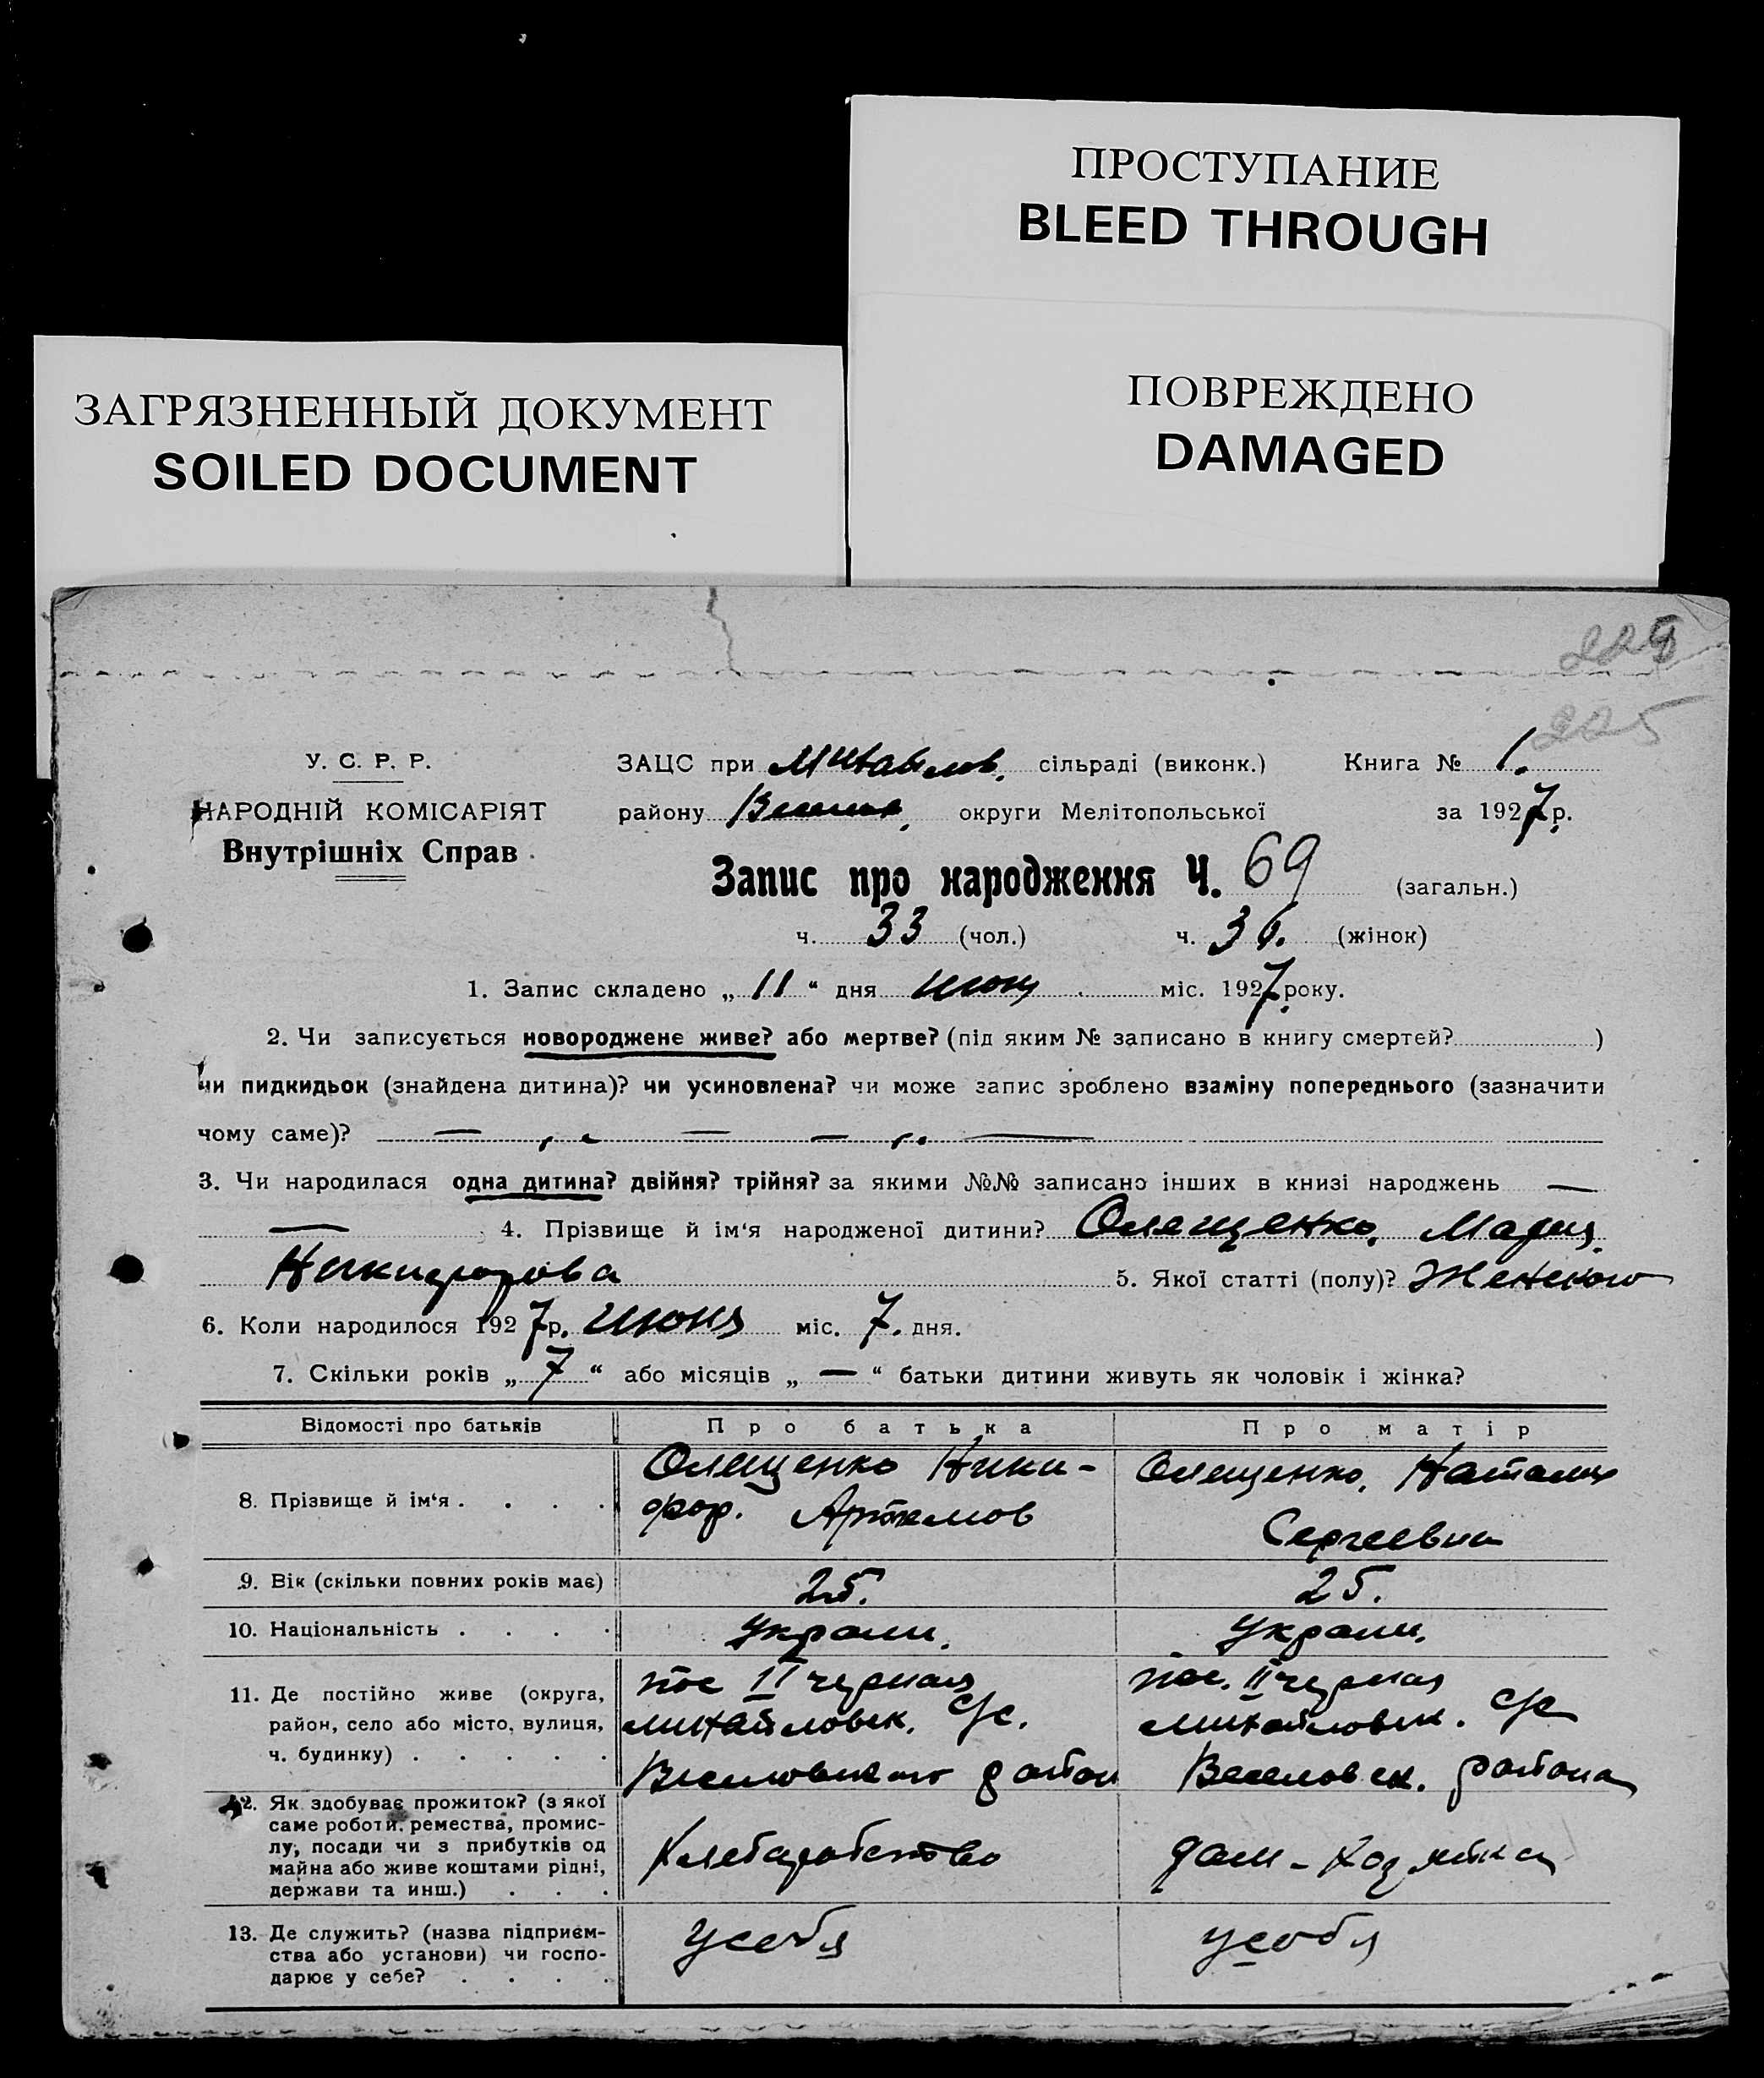 ПРОСТУПАНИЕ
BLEED THROUGH
ПОВРЕЖДЕНО
DAMAGED
ЗАГРЯЗНЕННЫЙ ДОКУМЕНТ
SOILED DOCUMENT
225
У. С. Р. Р.
НАРОДНІЙ КОМІСАРІЯТ
Внутрішніх Справ
ЗАЦС при Михайлов. сільраді (виконк.) Книга № 1.
району округи Мелітопольської за 1927 р.
Запис про народження Ч. 69 (загальн.)
ч. 33 (чол.) ч. 36. (жінок)
1. Запис складено „ 11 “ дня июня міс. 1927 року.
2. Чи записується новороджене живе? або мертве? (під яким № записано в книгу смертей? )
чи пидкидьок (знайдена дитина)? чи усиновлена? чи може запис зроблено взаміну попереднього (зазначити
чому саме)? —
3. Чи народилася одна дитина? двійня? трійня? за якими №№ записано інших в книзі народжень —
— ; 4. Прізвище й ім‘я народженої дитини? Олещенко, Мария
Никифорова 5. Якої статті (полу)? Женского
6. Коли народилося 1927 р. июня міс. 7. дня.
7. Скільки років „ 7 “ або місяців „ — “ батьки дитини живуть як чоловік і жінка?
Відомості про батьків Про батька Про матір
8. Прізвище й ім‘я . . . .
Олещенко Ники-
фор. Артемов
Олещенко, Наталия
Сергеевна
9. Вік (скільки повних років має) 25. 25.
10. Національність . . . . Украин. Украин.
11. Де постійно живе (округа,
район, село або місто, вулиця,
ч. будинку) . . . . .
пос II черная
михайловск. с/с.
Веселовского район
пос. II черная
михайловск. с/с
Веселовск. района
12. Як здобуває прожиток? (з якої
саме роботи, ремества, промис-
лу, посади чи з прибутків од
майна або живе коштами рідні,
держави та инш.) . . .
Хлебаробство
дом-хозяйка
13. Де служить? (назва підприєм-
ства або установи) чи госпо-
дарює у себе? . . . .
усебя
усебя